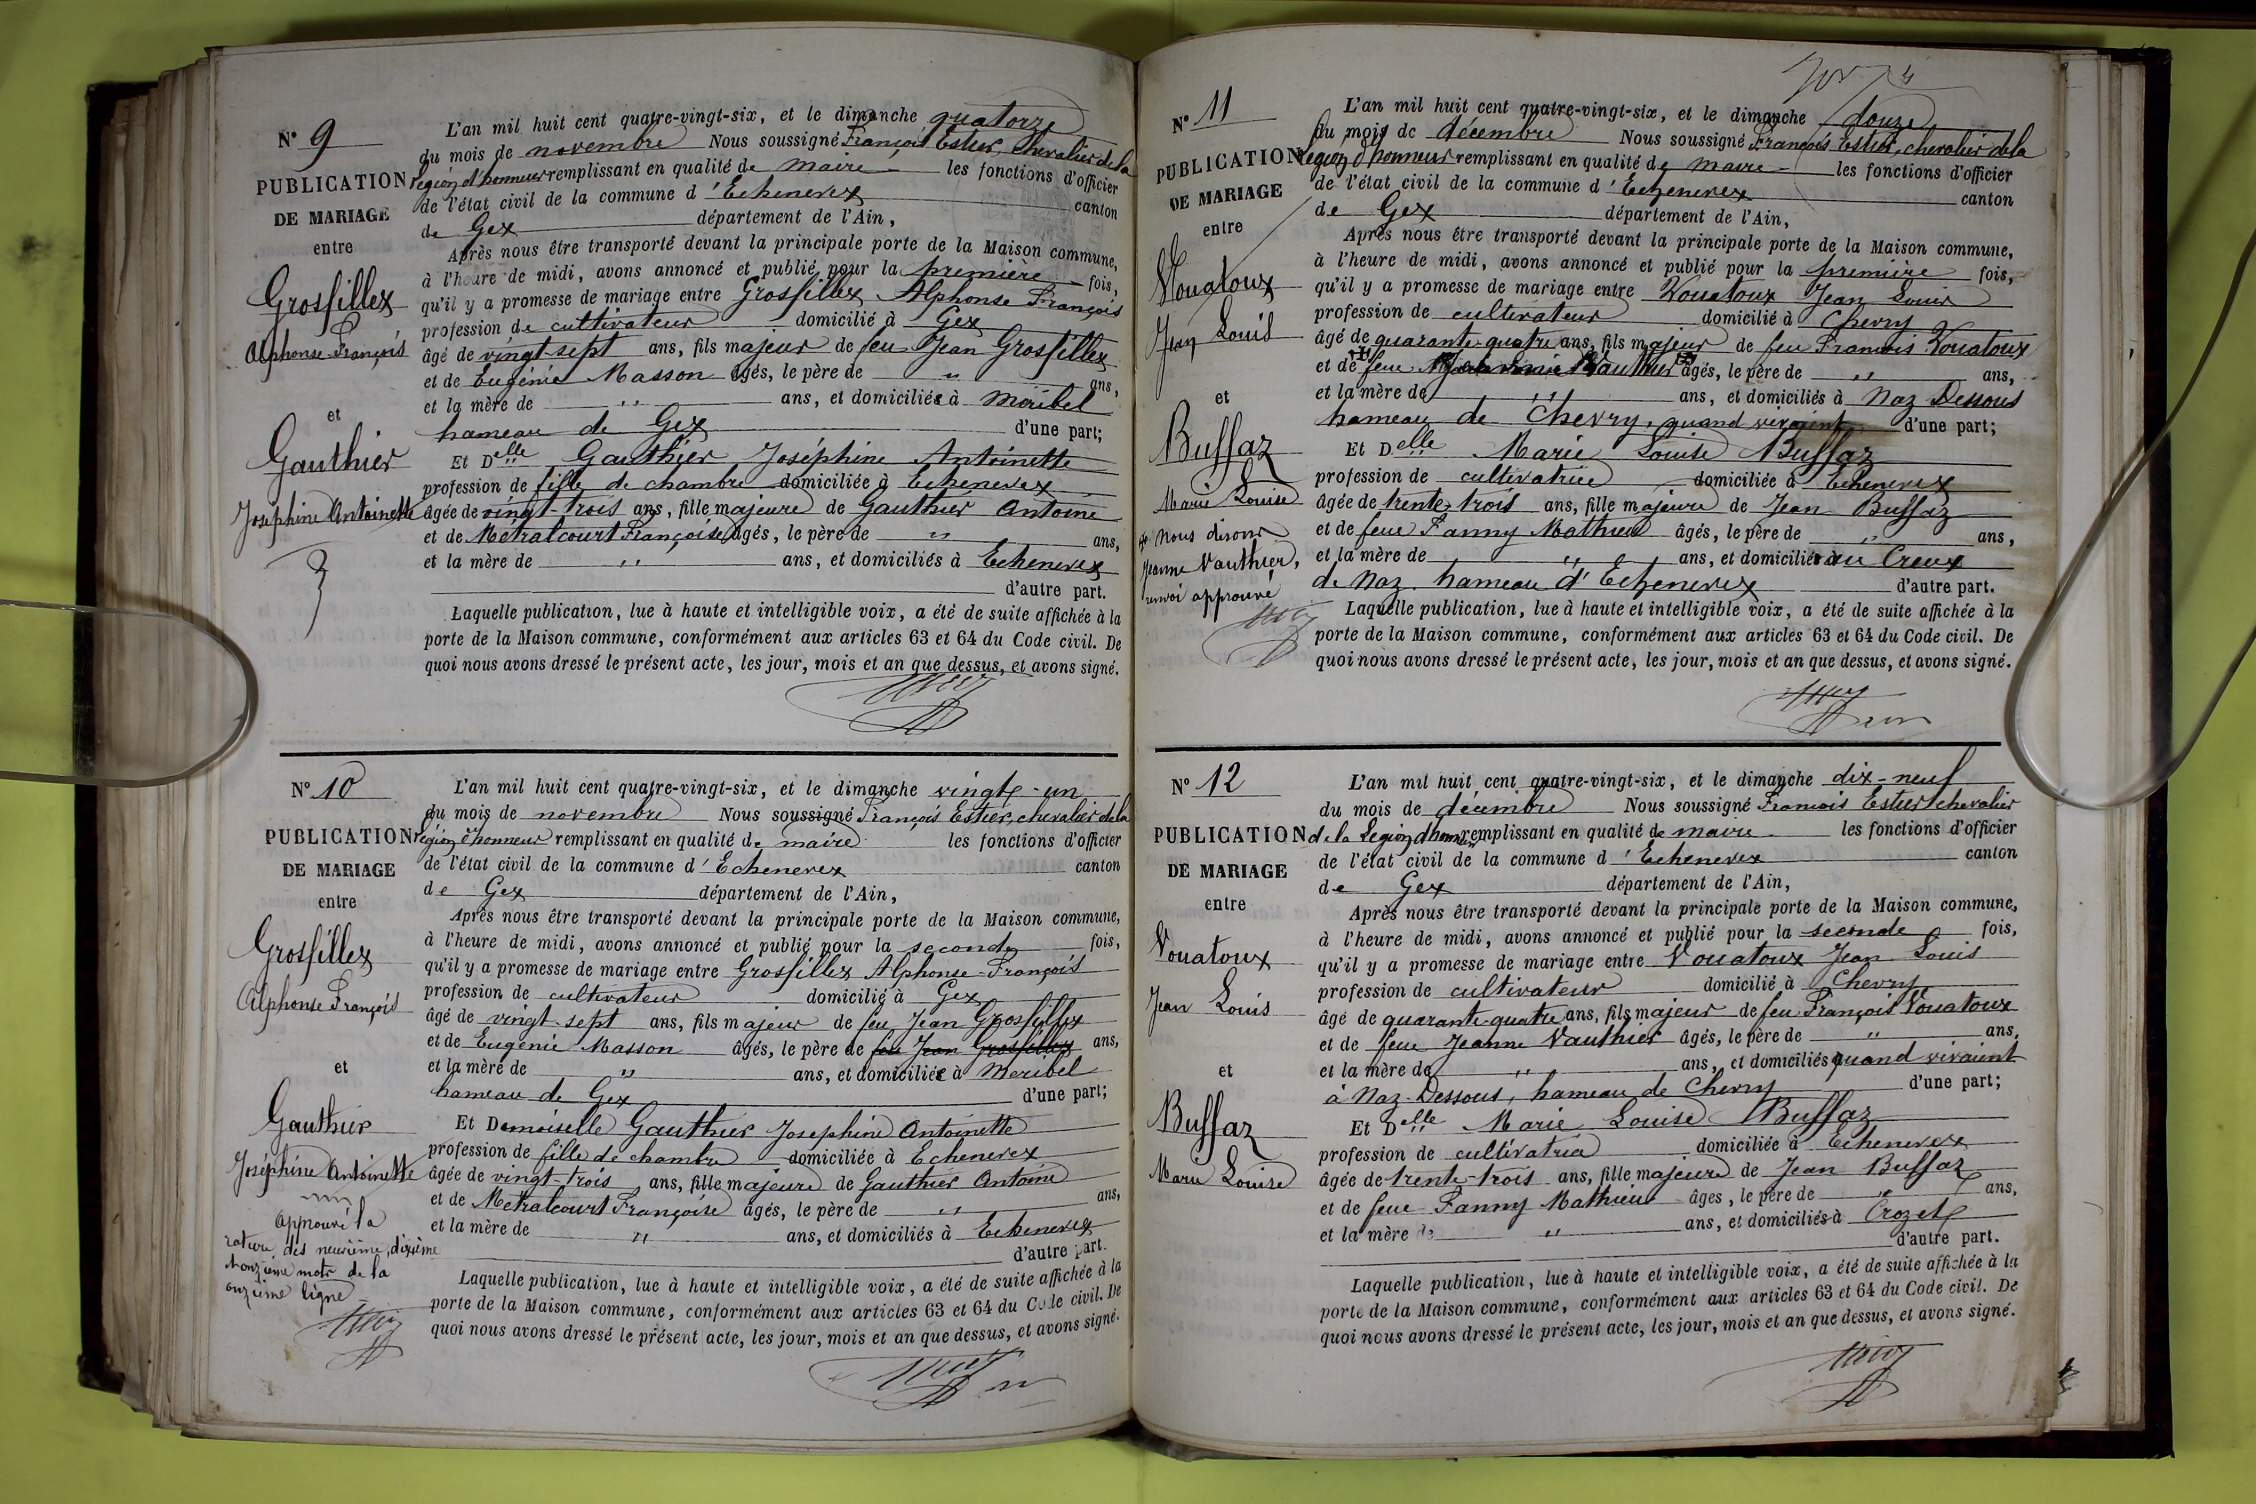 N° 9
PUBLICATION
DE MARIAGE
entre
Grosfillex
Alphonse François
et
Gauthier
Joséphine Antoinette
L'an mil huit cent quatre-vingt-six, et le dimanche quatorze
du mois de novembre Nous soussigné François Estier, chevalier de la
légion d'honneur remplissant en qualité de maire les fonctions d'officier
de l'état civil de la commune d'Echenevex canton
de Gex département de l'Ain,
Après nous être transporté devant la principale porte de la Maison commune,
à l'heure de midi, avons annoncé et publié pour la première fois,
qu'il y a promesse de mariage entre Grosfillex Alphonse François
profession de cultivateur domicilié à Gex
âgé de vingt-sept ans, fils majeur de feu Jean Grosfillex
et de Eugénie Masson âgés, le père de " ans,
et la mère de " ans, et domiciliée à Méribel
hameau de Gex d'une part;
Et Delle Gauthier Joséphine Antoinette
profession de fille de chambre domiciliée à Echenevex
âgée de vingt-trois ans, fille majeure de Gauthier Antoine
et de Métralcourt Françoise âgés, le père de " ans,
et la mère de " ans, et domiciliés à Echenevex
d'autre part.
Laquelle publication, lue à haute et intelligible voix, a été de suite affichée à la
porte de la Maison commune, conformément aux articles 63 et 64 du Code civil. De
quoi nous avons dressé le présent acte, les jour, mois et an que dessus, et avons signé.
N° 10
PUBLICATION
DE MARIAGE
entre
Grosfillex
Alphonse François
et
Gauthier
Joséphine Antoinette
Approuvé la
rature des neuvième, dixième
& onzième mots de la
onzième ligne
L'an mil huit cent quatre-vingt-six, et le dimanche vingt-un
du mois de novembre Nous soussigné François Estier, chevalier de la
légion d'honneur remplissant en qualité de maire les fonctions d'officier
de l'état civil de la commune d'Echenevex canton
de Gex département de l'Ain,
Après nous être transporté devant la principale porte de la Maison commune,
à l'heure de midi, avons annoncé et publié pour la seconde fois,
qu'il y a promesse de mariage entre Grosfillex Alphonse François
profession de cultivateur domicilié à Gex
âgé de vingt-sept ans, fils majeur de feu Jean Grosfillex
et de Eugénie Masson âgés, le père de feu Jean Grosfillex ans,
et la mère de " ans, et domiciliée à Méribel
hameau de Gex d'une part;
Et Demoiselle Gauthier Joséphine Antoinette
profession de fille de chambre domiciliée à Echenevex
âgée de vingt-trois ans, fille majeure de Gauthier Antoine
et de Métralcourt Françoise âgés, le père de " ans,
et la mère de " ans, et domiciliés à Echenevex
d'autre part.
Laquelle publication, lue à haute et intelligible voix, a été de suite affichée à la
porte de la Maison commune, conformément aux articles 63 et 64 du Code civil. De
quoi nous avons dressé le présent acte, les jour, mois et an que dessus, et avons signé.
N° 11
PUBLICATION
DE MARIAGE
entre
Vouatoux
Jean Louis
et
Buffaz
Marie Louise
Nous disons
Jeanne Vauthier,
renvoi approuvé
L'an mil huit cent quatre-vingt-six, et le dimanche douze
du mois de décembre Nous soussigné François Estier, chevalier de la
Légion d'honneur remplissant en qualité de maire les fonctions d'officier
de l'état civil de la commune d'Echenevex canton
de Gex département de l'Ain,
Après nous être transporté devant la principale porte de la Maison commune,
à l'heure de midi, avons annoncé et publié pour la première fois,
qu'il y a promesse de mariage entre Vouatoux Jean Louis
profession de cultivateur domicilié à Chevry
âgé de quarante-quatre ans, fils majeur de feu François Vouatoux
et de feue Vauthier âgés, le père de " ans,
et la mère de " ans, et domiciliés à Naz Dessous
hameau de Chevry, quand vivaient d'une part;
Et Delle Marie Louise Buffaz
profession de cultivatrice domiciliée à Echenevex
âgée de trente-trois ans, fille majeure de Jean Buffaz
et de feue Fanny Mathieu âgés, le père de " ans,
et la mère de " ans, et domiciliés au Creux
de Naz hameau d'Echenevex d'autre part.
Laquelle publication, lue à haute et intelligible voix, a été de suite affichée à la
porte de la Maison commune, conformément aux articles 63 et 64 du Code civil. De
quoi nous avons dressé le présent acte, les jour, mois et an que dessus, et avons signé.
N° 12
PUBLICATION
DE MARIAGE
entre
Vouatoux
Jean Louis
et
Buffaz
Marie Louise
L'an mil huit cent quatre-vingt-six, et le dimanche dix-neuf
du mois de décembre Nous soussigné François Estier chevalier
de la Légion d'honneur remplissant en qualité de maire les fonctions d'officier
de l'état civil de la commune d'Echenevex canton
de Gex département de l'Ain,
Après nous être transporté devant la principale porte de la Maison commune,
à l'heure de midi, avons annoncé et publié pour la seconde fois,
qu'il y a promesse de mariage entre Vouatoux Jean Louis
profession de cultivateur domicilié à Chevry
âgé de quarante-quatre ans, fils majeur de feu François Vouatoux
et de feue Jeanne Vauthier âgés, le père de " ans,
et la mère de " ans, et domiciliés quand vivaient
à Naz-Dessous, hameau de Chevry d'une part;
Et Delle Marie Louise Buffaz
profession de cultivatrice domiciliée à Echenevex
âgée de trente-trois ans, fille majeure de Jean Buffaz
et de feue Fanny Mathieu âgés, le père de " ans,
et la mère de " ans, et domiciliés à Crozet
d'autre part.
Laquelle publication, lue à haute et intelligible voix, a été de suite affichée à la
porte de la Maison commune, conformément aux articles 63 et 64 du Code civil. De
quoi nous avons dressé le présent acte, les jour, mois et an que dessus, et avons signé.